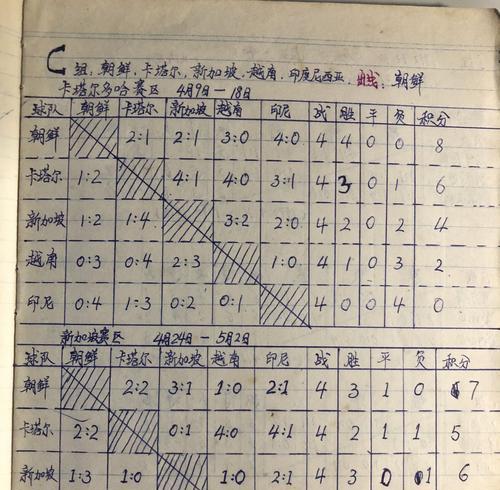 C组：朝鲜、卡塔尔、新加坡、越南、印度尼西亚、出线：朝鲜
卡塔尔多哈赛区 4月9日—18日
球队 朝鲜 卡塔尔 新加坡 越南 印尼 战 胜 平 负 积分
朝鲜 2:1 2:1 3:0 4:0 4 4 0 0 8
卡塔尔 1:2 4:1 4:0 3:1 4 3 0 1 6
新加坡 1:2 1:4 3:2 2:0 4 2 0 2 4
越南 0:3 0:4 2:3 1:0 4 1 0 3 2
印尼 0:4 1:3 0:2 0:1 4 0 0 4 0
新加坡赛区 4月24日—5月2日
球队 朝鲜 卡塔尔 新加坡 越南 印尼 战 胜 平 负 积分
朝鲜 2:2 3:1 1:0 2:1 4 3 1 0 7
卡塔尔 2:2 0:1 4:0 4:1 4 2 1 1 5
新加坡 1:3 1:0 1:0 2:1 4 3 0 1 6